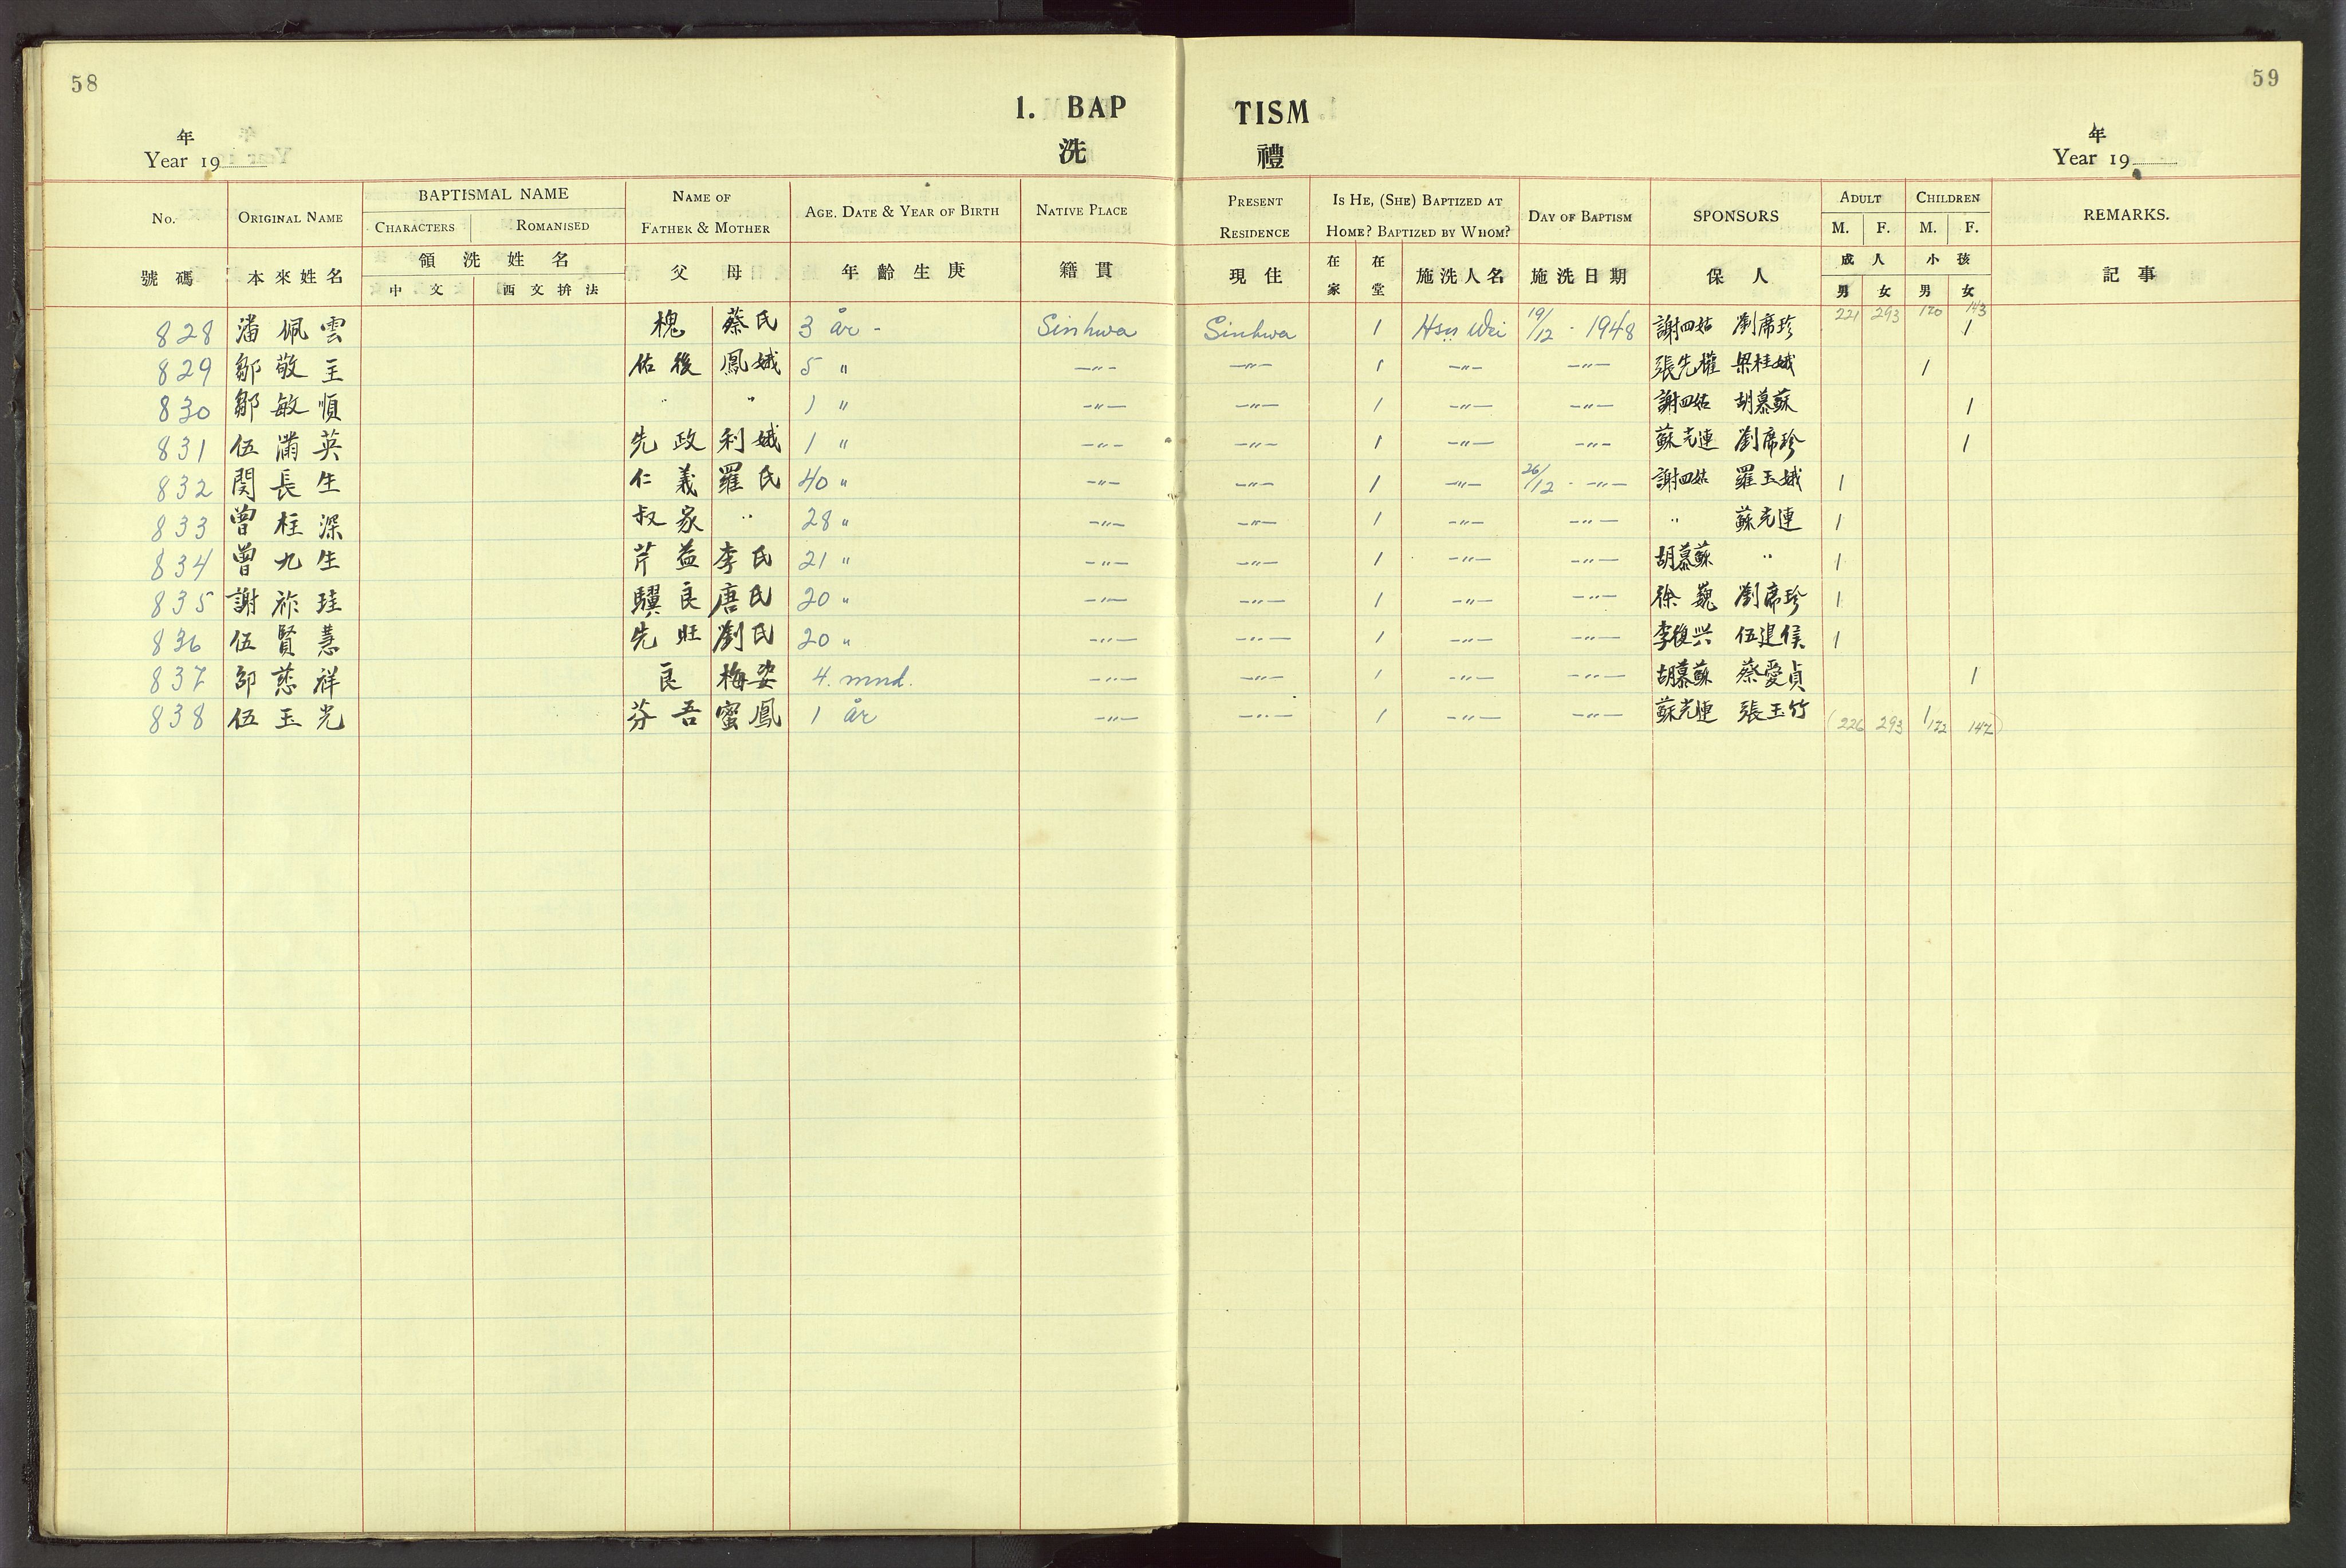 58
59
1. BAP TISM
洗 禮
年
Year 19
年
Year 19
No. ORIGINAL NAME BAPTISMAL NAME NAME OF FATHER & MOTHER AGE. DATE & YEAR OF BIRTH NATIVE PLACE PRESENT RESIDENCE IS HE, (SHE) BAPTIZED AT HOME? BAPTIZED BY WHOM? DAY OF BAPTISM SPONSORS ADULT CHILDREN REMARKS.
CHARACTERS ROMANISED M. F. M. F.
號碼 本來姓名 領洗姓名 父 母 年齡生庚 籍貫 現住 在家 在堂 施洗人名 施洗日期 保人 成人 小孩 記事
中文 西文拚法 男 女 男 女
221 293 170 143
828 潘佩雲 槐 蔡氏 3 år - Sinhwa Sinhwa 1 Hsü Wei 19/12 - 1948 謝四姑 劉席珍 1
829 鄒敬主 佑後 鳳娥 5 " —"— —"— 1 —"— —"— 張先權 梁桂娥 1
830 鄒敏順 " " 1 " —"— —"— 1 —"— —"— 謝四姑 胡慕蘇 1
831 伍滿英 先政 利娥 1 " —"— —"— 1 —"— —"— 蘇光連 劉席珍 1
832 閔長生 仁義 羅氏 40 " —"— —"— 1 —"— 26/12 - —"— 謝四姑 羅玉娥 1
833 曾柱深 叔家 " 28 " —"— —"— 1 —"— —"— " 蘇光連 1
834 曾九生 芹益 李氏 21 " —"— —"— 1 —"— —"— 胡慕蘇 " 1
835 謝祚珪 驥良 唐氏 20 " —"— —"— 1 —"— —"— 徐巍 劉席珍 1
836 伍賢慧 先旺 劉氏 20 " —"— —"— 1 —"— —"— 李復兴 伍建侯 1
837 邵慈祥 良 梅姿 4. mnd. —"— —"— 1 —"— —"— 胡慕蘇 蔡愛貞 1
838 伍玉光 芬吾 蜜鳳 1 år —"— —"— 1 —"— —"— 蘇光連 張玉竹 1
(226 293 172 147)